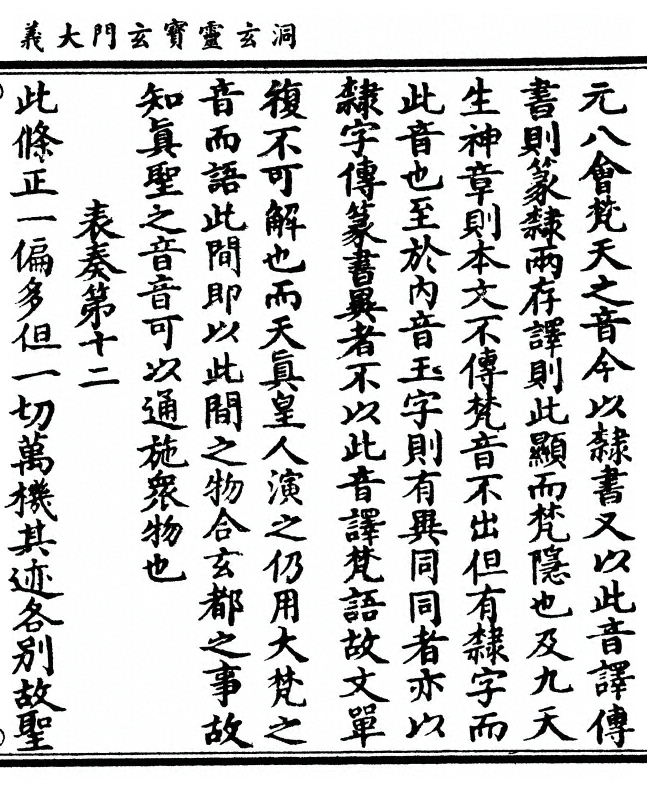 洞玄靈寶玄門大義
元八會梵天之音今以隸書又以此音譯傳
書則篆隸兩存譯則此顯而梵隱也及九天
生神章則本文不傳梵音不出但有隸字而
此音也至於內音玉字則有異同同者亦以
隸字傳篆書異者不以此音譯梵語故文單
複不可解也而天真皇人演之仍用大梵之
音而語此間即以此間之物合玄都之事故
知眞聖之音音可以通施衆物也
表奏第十二
此條正一偏多但一切萬機其迹各別故聖